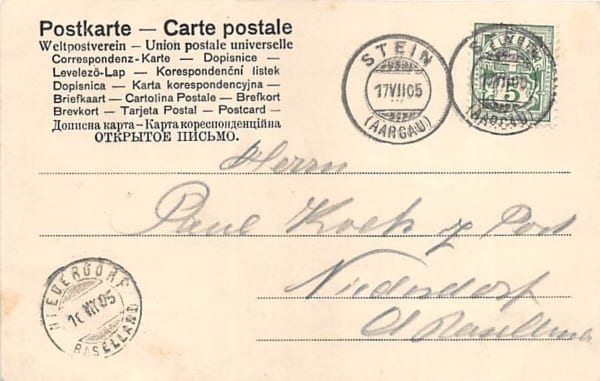 Postkarte — Carte postale
Weltpostverein — Union postale universelle
Correspondenz-Karte — Dopisnice —
Levelező-Lap — Korespondenční listek
Dopisnica — Karta korespondencyjna —
Briefkaart — Cartolina Postale — Brefkort
Brevkort — Tarjeta Postal — Postcard —
Дописна карта — Карта кореспонденційна
ОТКРЫТОЕ ПИСЬМО.
STEIN
17 VII 05
(AARGAU)
STEIN
VII 05
(AARGAU)
5
Herrn
Paul Koch z Post
Niederdorf
NIEDERDORF
VII 05
BASELLAND